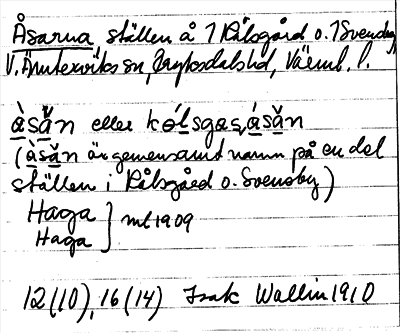 Åsarna ställen å 7 Kålsgård o. 7 Svensby
V. Ämterviks sn, Fryksdals hd, Värml. l.
àsa̯n eller kólsgas,ása̯n
(àsa̯n är gemensamt namn på en del
ställen i Kålsgård o. Svensby)
Haga
Haga ] mt 1909
12 (10), 16 (14) Isak Wallin 1910